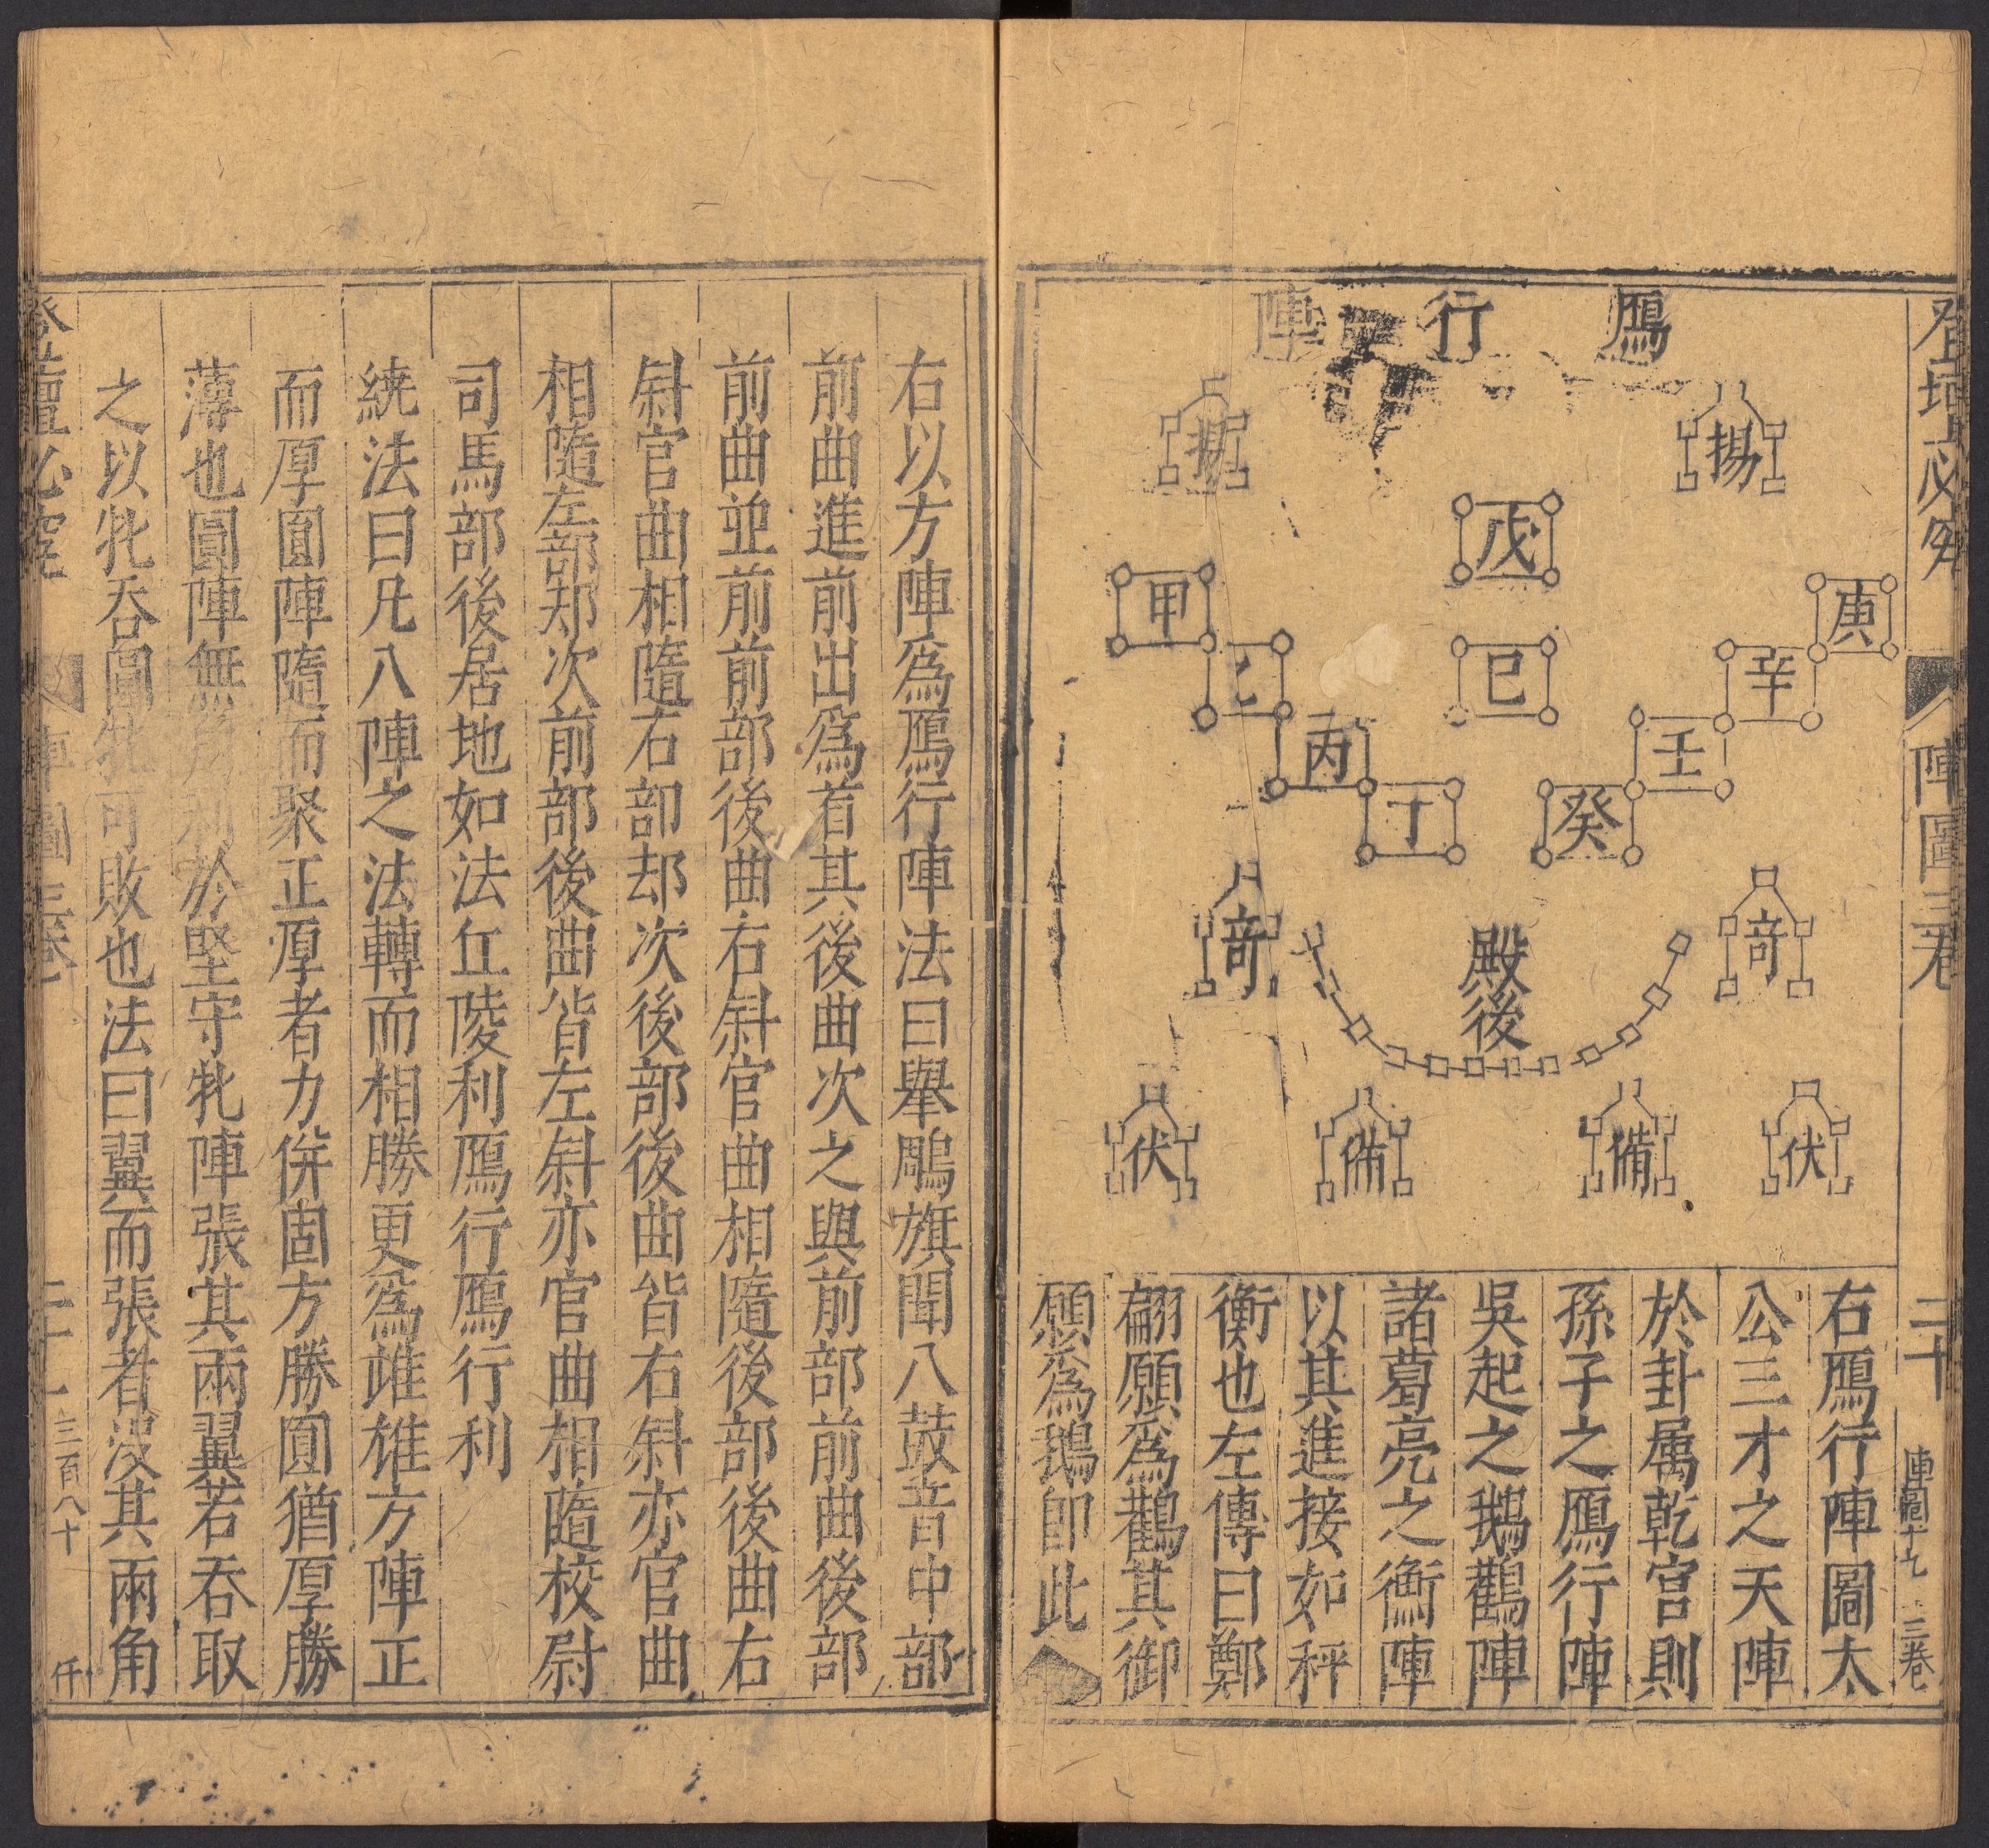 陣圖三卷
二十
三卷
鴈行陣
揚
揚
戊
庚
甲
辛
己
乙
壬
丙
癸
丁
奇
奇
殿後
伏
備
備
伏
右鴈行陣圖太
公三才之天陣
於卦属乾宮則
孫子之鴈行陣
吳起之鵝鸛陣
諸葛亮之衡陣
以其進接如秤
衡也左傳曰鄭
翩願為鸛其御
願為鵝即此
右以方陣為鴈行陣法曰舉鵰旗聞八鼓音中部
前曲進前出為首其後曲次之與前部前曲後部
前曲並前前部後曲右斜官曲相隨後部後曲右
斜官曲相隨右部却次後部後曲皆右斜亦官曲
相隨左部却次前部後曲皆左斜亦官曲相隨校尉
司馬部後居地如法丘陵利鴈行鴈行利
統法曰凡八陣之法轉而相勝更為雌雄方陣正
而厚圓陣隨而聚正厚者力併固方勝圓猶厚勝
薄也圓陣無所利於堅守牝陣張其兩翼若吞取
之以牝吞圓牝可敗也法曰翼而張者沒其兩角
登壇必究
陣圖三卷
二十一
三百八十
仟